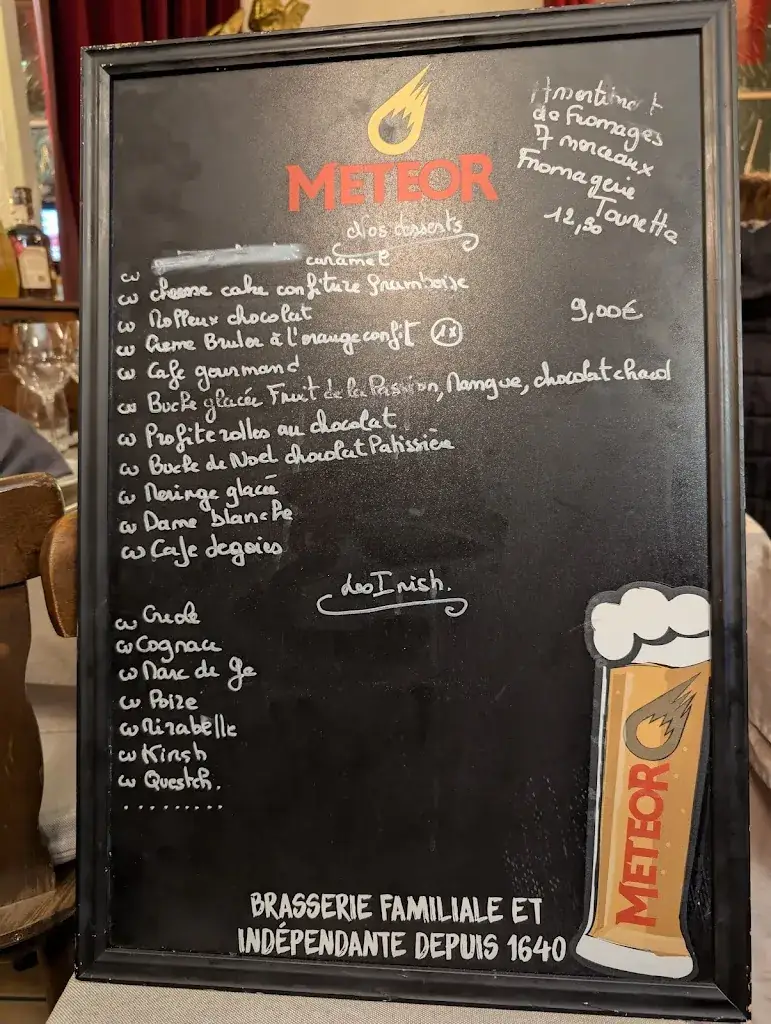 METEOR
Assortiment
de Fromages
7 morceaux
Fromagerie
Tourette
12,50
Nos desserts
caramel
cheese cake confiture framboise
Molleux chocolat
9,00€
Creme Brulee à l'orange confit 1x
Cafe gourmand
Buche glacée Fruit de la Passion, Mangue, chocolat chaud
Profiterolles au chocolat
Buche de Noel chocolat Patissière
Meringe glacée
Dame blanche
Cafe degoies
les Irish.
Cognac
Marc de Ge
Poire
Mirabelle
Kirsh
Questch.
.........
METEOR
BRASSERIE FAMILIALE ET
INDÉPENDANTE DEPUIS 1640